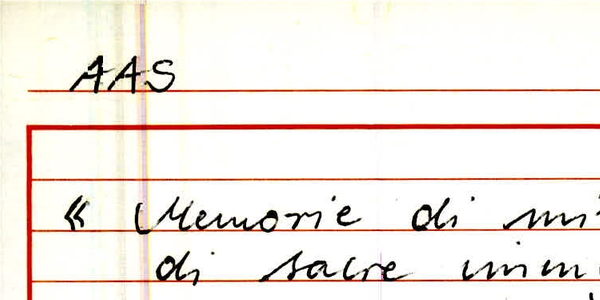 AAS
« Memorie di mi
di sacre imm